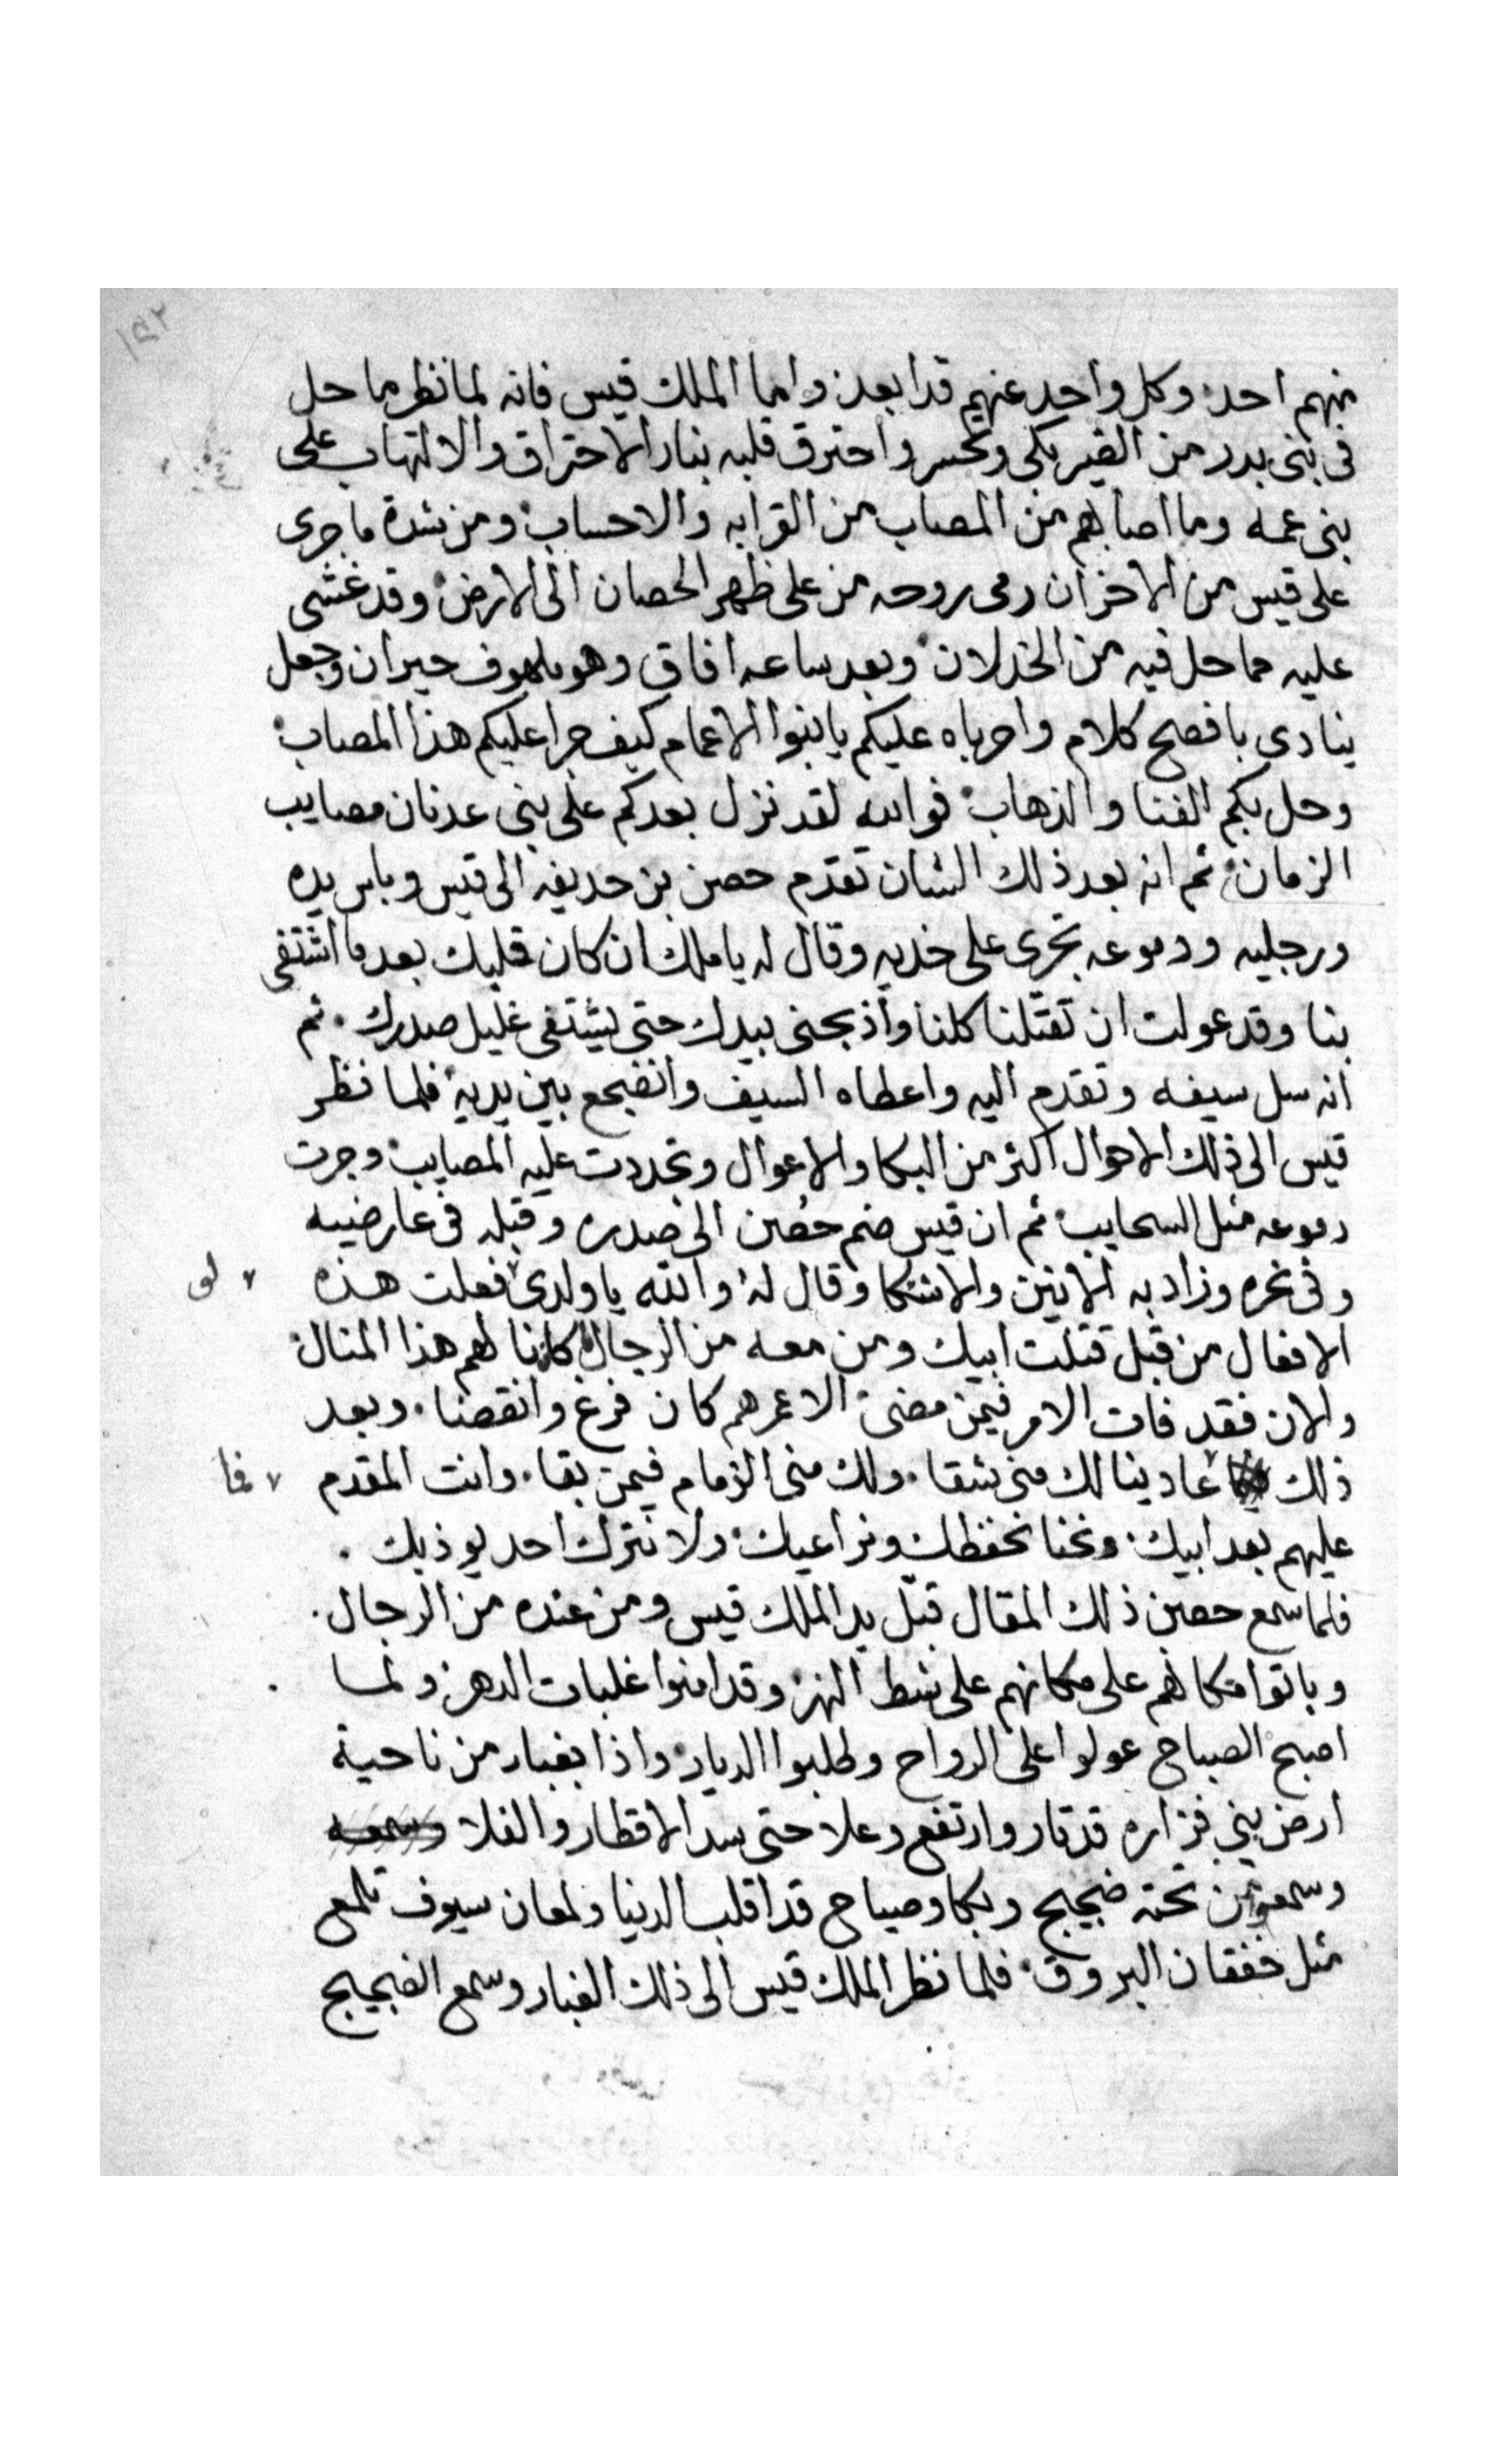 ١٥٢
منهم احد وكل واحد عنهم قد ابعد واما الملك قيس فانه لما نظر ما حل
فى بنى بدر من القير بكى وتحسر واحترق قلبه بنار الاحتراق والالتهاب على
بنى عمه وما اصابهم من المصاب من القرابه والاحساب ومن شدة ما جرى
على قيس من الاحزان رمى بروحه من على ظهر الحصان الى الارض وقد غشى
عليه مما حل فيه من الخذلان وبعد ساعه افاق وهو ملهوف حيران وجعل
ينادى بافصح كلام واحرباه عليكم يا بنوا الاعمام كيف جرا عليكم هذا المصاب
وحل بكم الفنا والذهاب فوالله لقد نزل بعدكم على بنى عدنان مصايب
الزمان ثم انه بعد ذلك الشان تقدم حصن بن حديفه الى قيس وباس يده
ورجليه ودموعه تجرى على خديه وقال له يا ملك ان كان قلبك بعد ما اشتفى
بنا وقد عولت ان تقتلنا كلنا واذبحنى بيدك حتى يشتفى غليل صدرك . ثم
انه سل سيفه وتقدم اليه واعطاه السيف وانضجع بين يديه فلما نظر
قيس الى ذلك الاحوال اكثر من البكا والاعوال وتجددت عليه المصايب وجرت
دموعه مثل السحايب ثم ان قيس ضم حصين الى صدره وقبله فى عارضيه
وفى نحره وزاد به الانين والاشتكا وقال له والله يا ولدى ٧ فعلت هذه ٧ لو
الافعال من قبل قتلت ابيك ومن معه من الرجال كان نالهم هذا المنال
والان فقد فات الامر فيمن مضى الا عمرهم كان فرغ وانقضا . وبعد
ذلك ٧ عاد ينالك منى شقا . ولك منى الزمام فيمن بقا . وانت المقدم ٧ فما
عليهم بعد ابيك ونحنا نحفظك ونراعيك ولا نترك احد يوذيك .
فلما سمع حصين ذلك المقال قبّل يد الملك قيس ومن عنده من الرجال .
وباتوا مكانهم على مكانهم على شط النهر وقد امنوا غلبات الدهر ولما
اصبح الصباح عولوا على الرواح وطلبوا الديار واذا بغبار من ناحية
ارض بنى فزاره قد ثار وارتفع وعلا حتى سد الاقطار والفلا
وسمعوا من تحته ضجيج وبكا وصياح قد اقلب الدنيا ولمعان سيوف تلمع
مثل خفقان البروق فلما نظر الملك قيس الى ذلك الغبار وسمع الضجيج